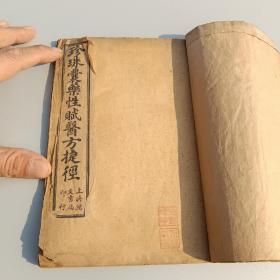 珍珠囊藥性賦醫方捷徑
上海
文書局
印行